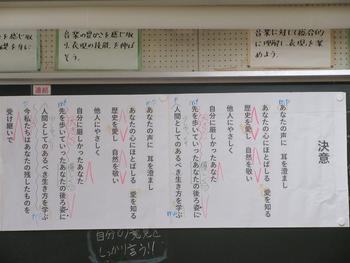 音楽の豊かさを感じ取り、表現の技能を伸ばそう。
音楽に対して総合的に理解し、表現を深めよう。
連結
決意
あなたの声に 耳を澄まし
あなたの心にほとばしる 愛を知る
歴史を愛し 自然を敬い
他人にやさしく
自分に厳しかったあなた
先を歩いていったあなたの後ろ姿に
人間としてのあるべき生き方を学ぶ
あなたの声に 耳を澄まし
あなたの心にほとばしる 愛を知る
歴史を愛し 自然を敬い
他人にやさしく
自分に厳しかったあなた
先を歩いていったあなたの後ろ姿に
人間としてのあるべき生き方を学ぶ
今 私たちはあなたの残したものを
受け継いで
mp
mf
しっかり言う!!